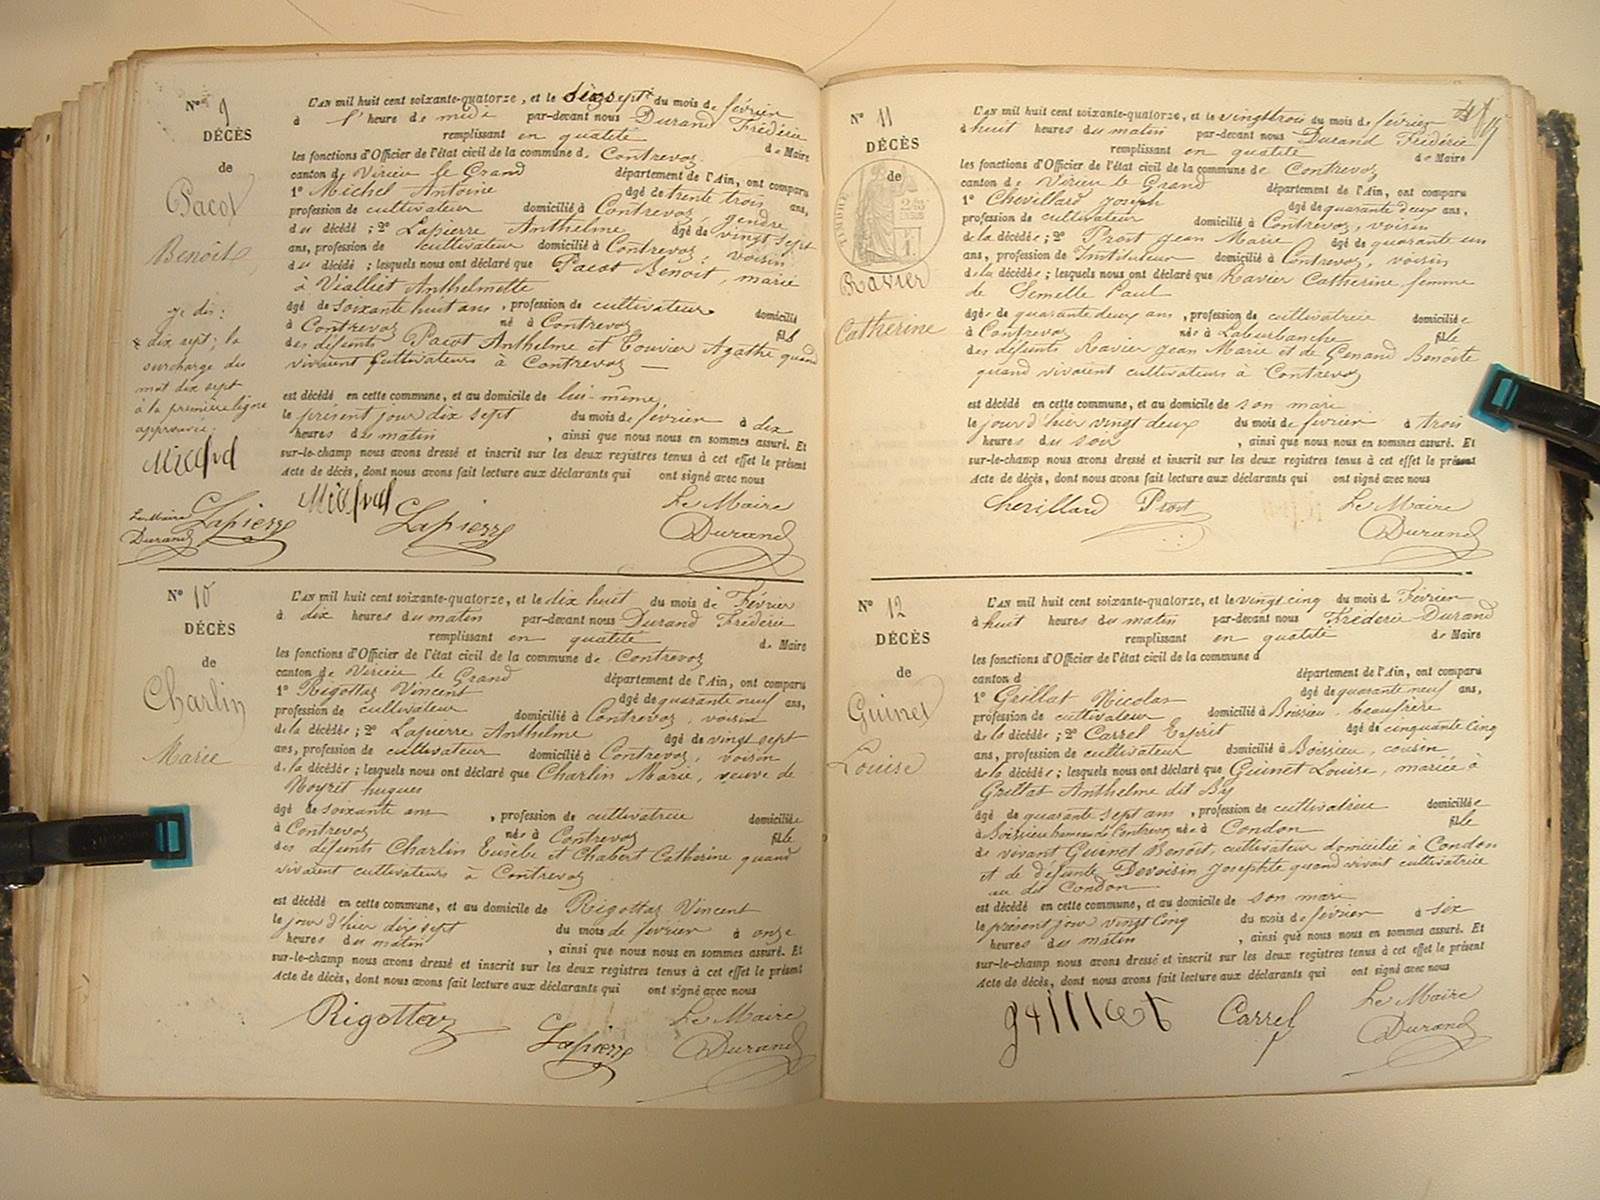 N° 9
DÉCÈS
de
Pacot
Benoît
je dis:
dix sept; la
surcharge du
mot dix sept
à la première ligne
approuvée;
Michel
Le Maire
Durand
Lapierre
L'AN mil huit cent soixante-quatorze, et le dix sept du mois de février
à l'heure de midi par-devant nous Durand Fréderic
remplissant en qualité de Maire
les fonctions d'Officier de l'état civil de la commune de Contrevoz
canton de Virieu le Grand département de l'Ain, ont comparu
1° Michel Antoine âgé de trente trois ans,
profession de cultivateur domicilié à Contrevoz, gendre
du décédé; 2° Lapierre Anthelme âgé de vingt sept
ans, profession de cultivateur domicilié à Contrevoz, voisin
du décédé; lesquels nous ont déclaré que Pacot Benoit, marié
à Vialliet Anthelmette
âgé de soixante huit ans, profession de cultivateur domicilié
à Contrevoz né à Contrevoz fils
des défunts Pacot Anthelme et Touvier Agathe quand
vivaient cultivateurs à Contrevoz —
est décédé en cette commune, et au domicile de lui-même,
le présent jour dix sept du mois de février à dix
heures du matin, ainsi que nous nous en sommes assuré. Et
sur-le-champ nous avons dressé et inscrit sur les deux registres tenus à cet effet le présent
Acte de décès, dont nous avons fait lecture aux déclarants qui ont signé avec nous
Michel Lapierre Le Maire
Durand
N° 10
DÉCÈS
de
Charlin
Marie
L'AN mil huit cent soixante-quatorze, et le dix huit du mois de Février
à dix heures du matin par-devant nous Durand Fréderic
remplissant en qualité de Maire
les fonctions d'Officier de l'état civil de la commune de Contrevoz
canton de Virieu le Grand département de l'Ain, ont comparu
1° Rigottaz Vincent âgé de quarante neuf ans,
profession de cultivateur domicilié à Contrevoz, voisin
de la décédée; 2° Lapierre Anthelme âgé de vingt sept
ans, profession de cultivateur domicilié à Contrevoz, voisin
de la décédée; lesquels nous ont déclaré que Charlin Marie, veuve de
Noyret hugues
âgé de soixante ans, profession de cultivatrice domiciliée
à Contrevoz née à Contrevoz fille
des défunts Charlin Eusèbe et Chabert Catherine quand
vivaient cultivateurs à Contrevoz
est décédé en cette commune, et au domicile de Rigottaz Vincent
le jour d'hier dix sept du mois de février à onze
heures du matin, ainsi que nous nous en sommes assuré. Et
sur-le-champ nous avons dressé et inscrit sur les deux registres tenus à cet effet le présent
Acte de décès, dont nous avons fait lecture aux déclarants qui ont signé avec nous
Rigottaz Lapierre Le Maire
Durand
N° 11
DÉCÈS
de
TIMBRE
Ravier
Catherine
L'AN mil huit cent soixante-quatorze, et le vingt trois du mois de février
à huit heures du matin par-devant nous Durand Fréderic
remplissant en qualité de Maire
les fonctions d'Officier de l'état civil de la commune de Contrevoz
canton de Virieu le Grand département de l'Ain, ont comparu
1° Chevillard Joseph âgé de quarante deux ans,
profession de cultivateur domicilié à Contrevoz, voisin
de la décédée; 2° Prost Jean Marie âgé de quarante un
ans, profession de Instituteur domicilié à Contrevoz, voisin
de la décédée; lesquels nous ont déclaré que Ravier Catherine femme
de Semelle Paul
âgée de quarante deux ans, profession de cultivatrice domiciliée
à Contrevoz née à Laburbanche fille
des défunts Ravier Jean Marie et de Genand Benoîte
quand vivaient cultivateurs à Contrevoz
est décédé en cette commune, et au domicile de son mari
le jour d'hier vingt deux du mois de février à trois
heures du soir, ainsi que nous nous en sommes assuré. Et
sur-le-champ nous avons dressé et inscrit sur les deux registres tenus à cet effet le présent
Acte de décès, dont nous avons fait lecture aux déclarants qui ont signé avec nous
Chevillard Prost Le Maire
Durand
N° 12
DÉCÈS
de
Guinet
Louise
L'AN mil huit cent soixante-quatorze, et le vingt cinq du mois d Février
à huit heures du matin par-devant nous Fréderic Durand
remplissant en qualité de Maire
les fonctions d'Officier de l'état civil de la commune d
canton d département de l'Ain, ont comparu
1° Grillat Nicolas âgé de quarante neuf ans,
profession de cultivateur domicilié à Boissieu, beaufrère
de la décédée; 2° Carrel Esprit âgé de cinquante cinq
ans, profession de cultivateur domicilié à Boissieu, cousin
de la décédée; lesquels nous ont déclaré que Guinet Louise, mariée à
Grillat Anthelme dit
âgé de quarante sept ans, profession de cultivatrice domiciliée
à Boissieu hameau de Contrevoz née à Condon fille
de vivant Guinet Benoît, cultivateur domicilié à Condon
et de défunte Devoisin Josephte quand vivait cultivatrice
au dit Condon
est décédé en cette commune, et au domicile de son mari
le présent jour vingt cinq du mois de février à six
heures du matin, ainsi que nous nous en sommes assuré. Et
sur-le-champ nous avons dressé et inscrit sur les deux registres tenus à cet effet le présent
Acte de décès, dont nous avons fait lecture aux déclarants qui ont signé avec nous
Carrel Le Maire
Durand